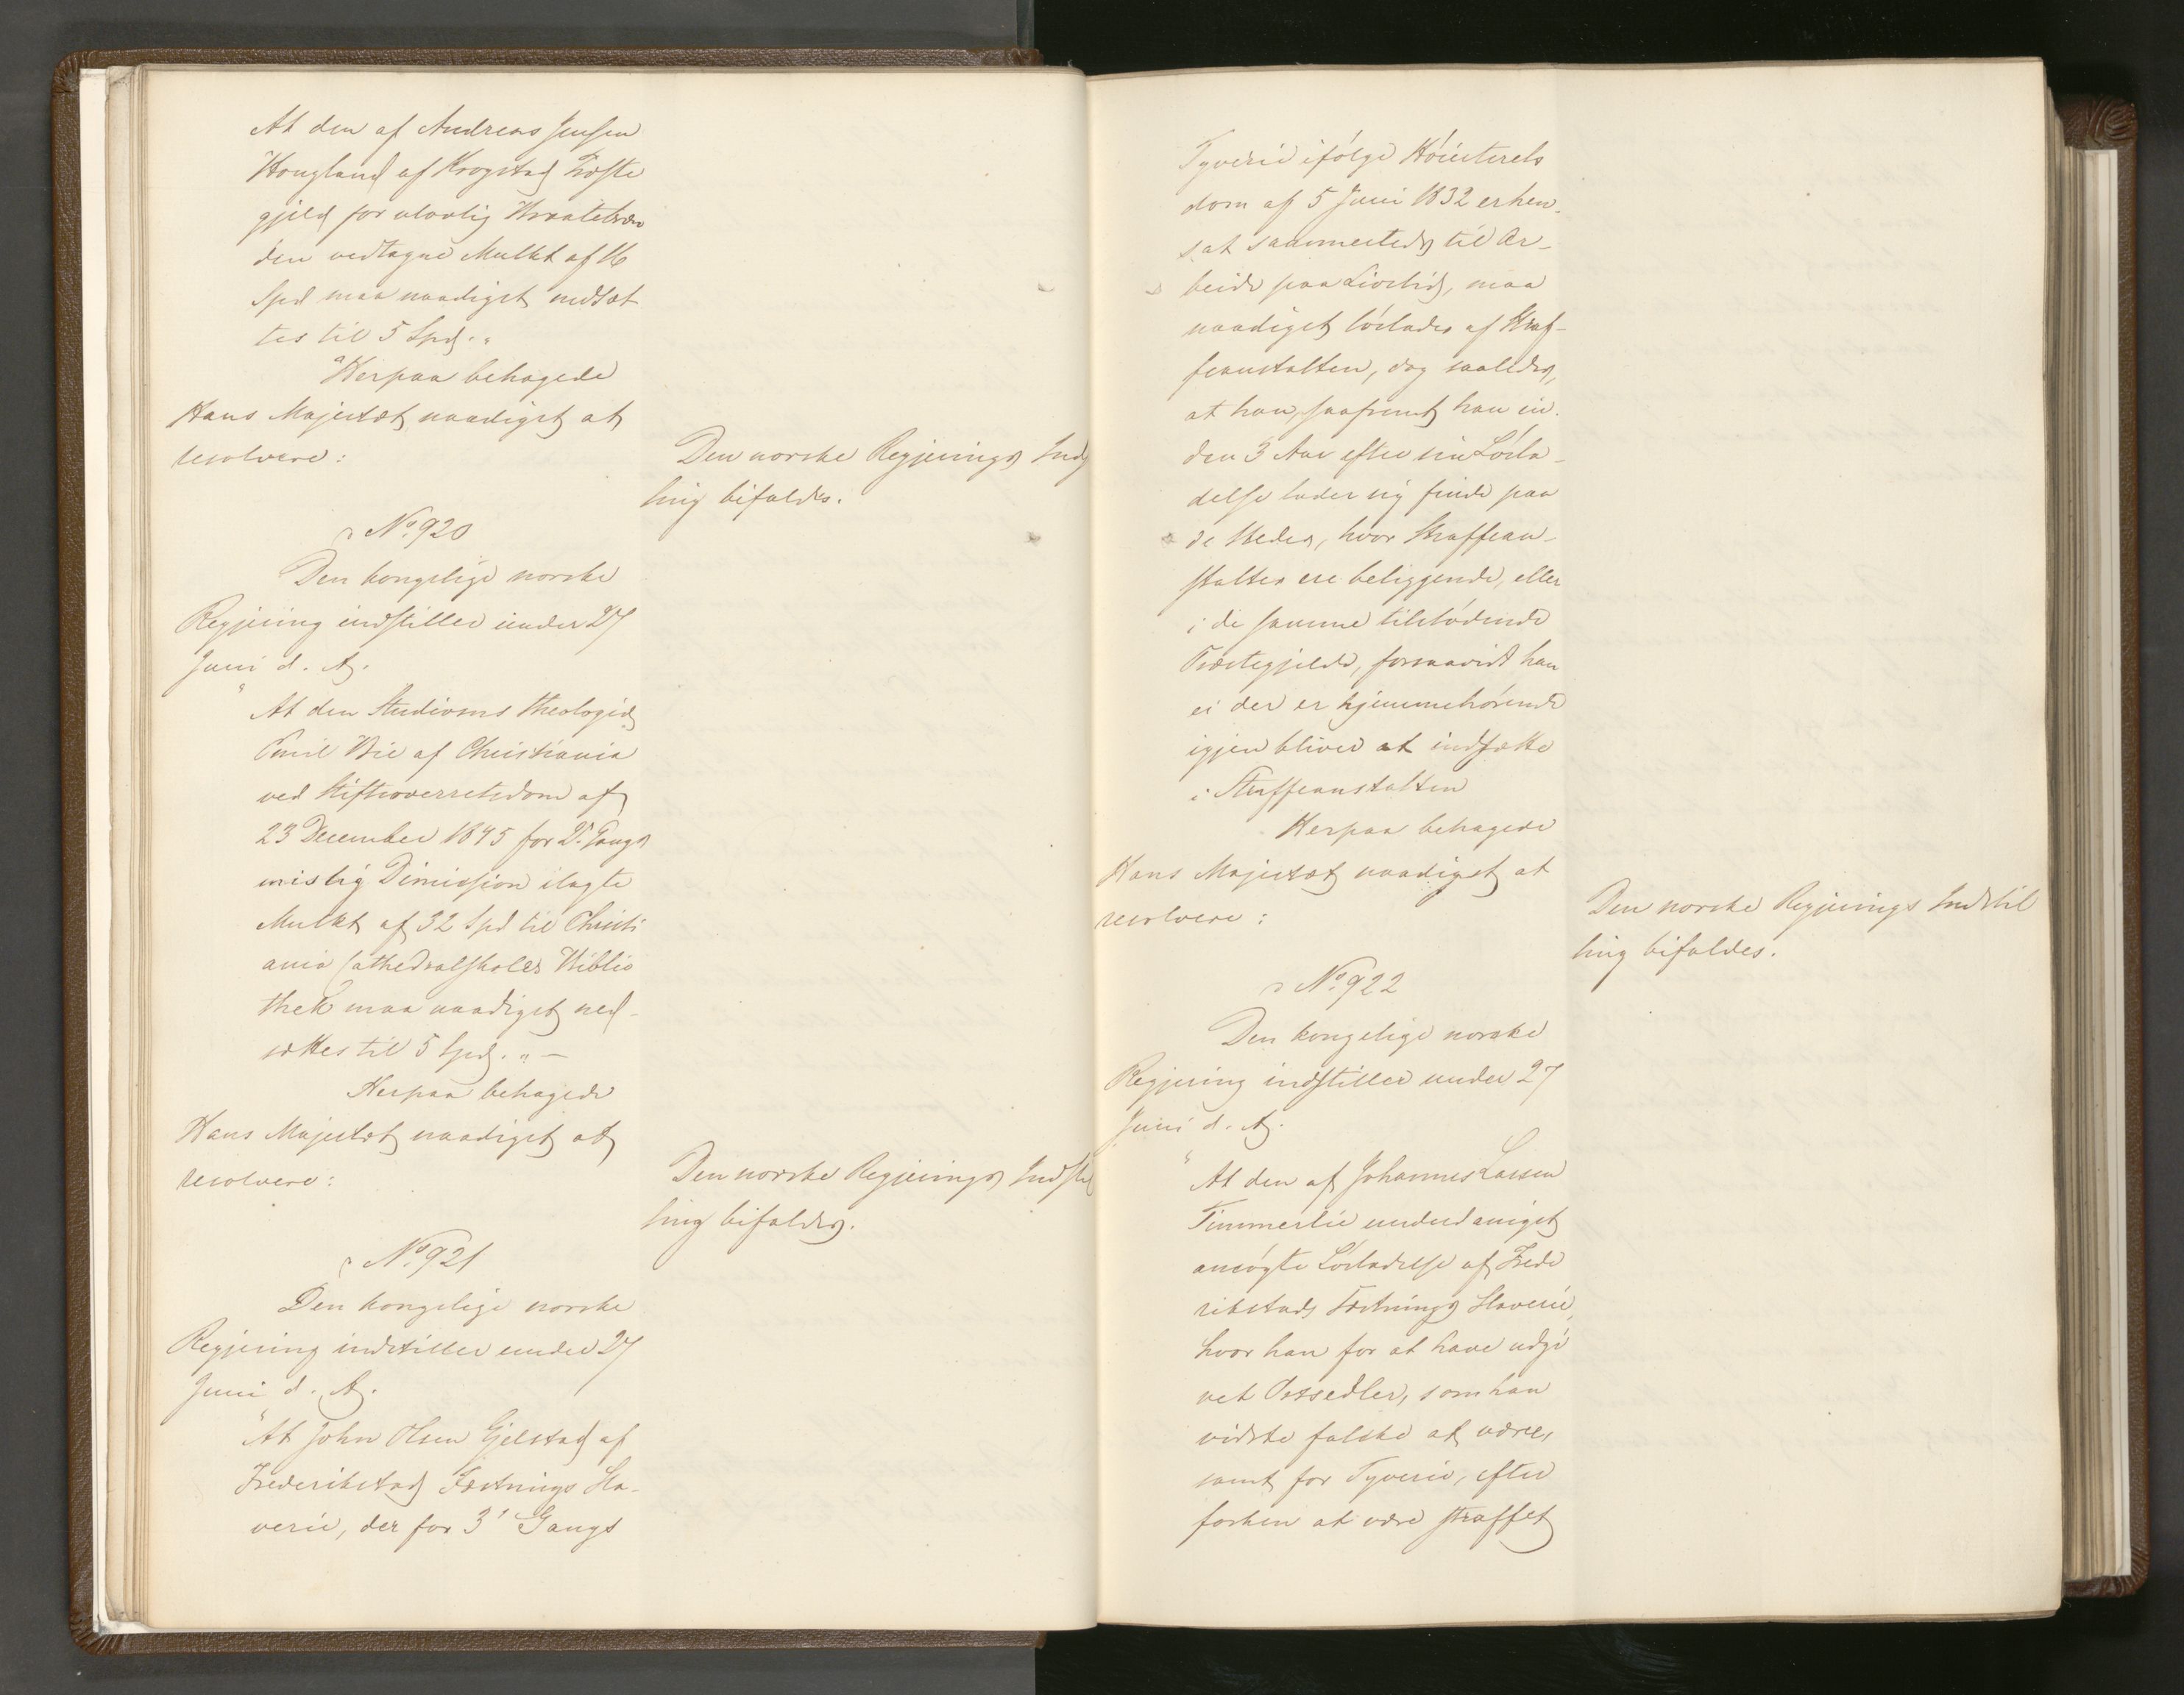 At den af Andreas Jensen
Hougland af Krogstad Præste
gjeld for ulovlig Braatebræn
den vedtagne Mulkt af 16
Spd maa naadigst nedsæt
tes til 5 Spd."
Herpaa behagede
Hans Majestæt naadigst at
resolvere:
Den norske Regjerings Indstil
ling bifaldes.
No 920
Den kongelige norske
Regjering indstiller under 27
Juni d. A.
"At den Studiosus theologiæ
Emil Bie af Christiania
ved Stiftsoverretsdom af
23 December 1845 for 2. Gangs
mislig Dimission ilagte
Mulkt af 32 Spd til Christi
ania Cathedralskoles Biblio
thek maa naadigst ned-
sættes til 5 Spd." —
Herpaa behagede
Hans Majestæt naadigst at
resolvere:
Den norske Regjerings Indstil
ling bifaldes.
No 921
Den kongelige norske
Regjering indstiller under 27
Juni d. A.
"At John Olsen Gjelstad af
Frederikstad Fæstnings Sla-
verie, der for 3' Gangs
Tyverie ifølge Høiesterets
dom af 5 Juni 1832 er hen-
sat sammesteds til Ar-
beide paa Livstid, maa
naadigst løslades af Straf-
feanstalten, dog saaledes,
at han, saafremt han in-
den 3 Aar efter sin Løsla-
delse lader sig finde paa
de Steder, hvor Straffean-
stalter ere beliggende, eller
i de samme tilstødende
Præstegjelde, forsaavidt han
ei der er hjemmehørende
igjen bliver at indsætte
i Straffeanstalten
Herpaa behagede
Hans Majestæt naadigst at
resolvere:
Den norske Regjerings Indstil
ling bifaldes.
No 922
Den kongelige norske
Regjering indstiller under 27
Juni d. A.
"At den af Johannes Larsen
Timmerlie underdanigst
ansøgte Løsladelse af Frede
rikstads Fæstnings Slaverie,
hvor han for at have udgi
vet
vidste falske at være,
samt for Tyverie, efter
forhen at være straffet